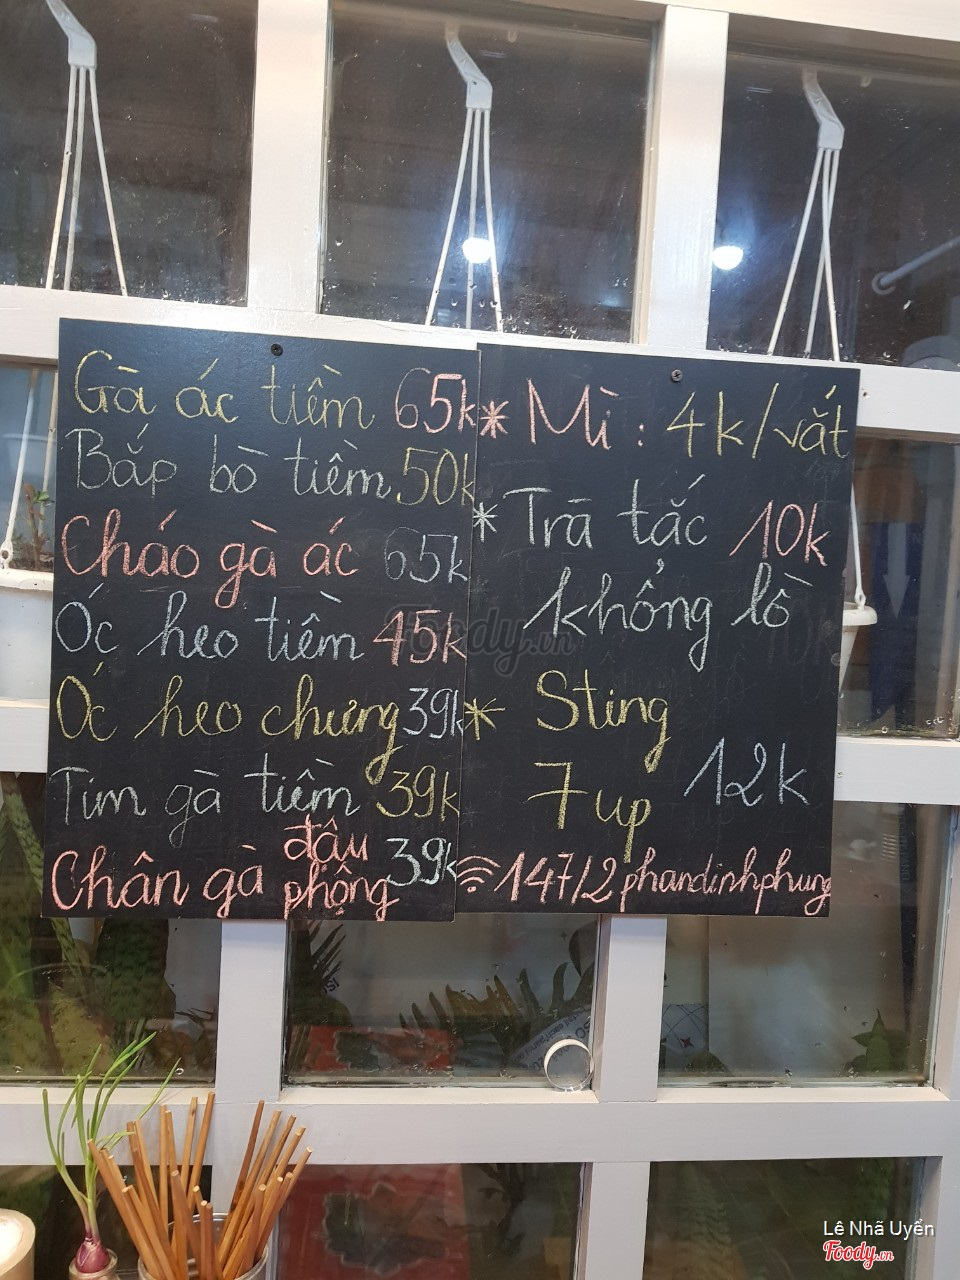 Gà ác tiềm 65k
Bắp bò tiềm 50k
Cháo gà ác 65k
Óc heo tiềm 45k
Óc heo chưng 39k
Tim gà tiềm 39k
Chân gà đậu phộng 39k
* Mì : 4k/vắt
* Trà tắc 10k
khổng lồ
* Sting
7 up 12k
147/2phandinhphung
Foody.vn
Lê Nhã Uyển
Foody.vn